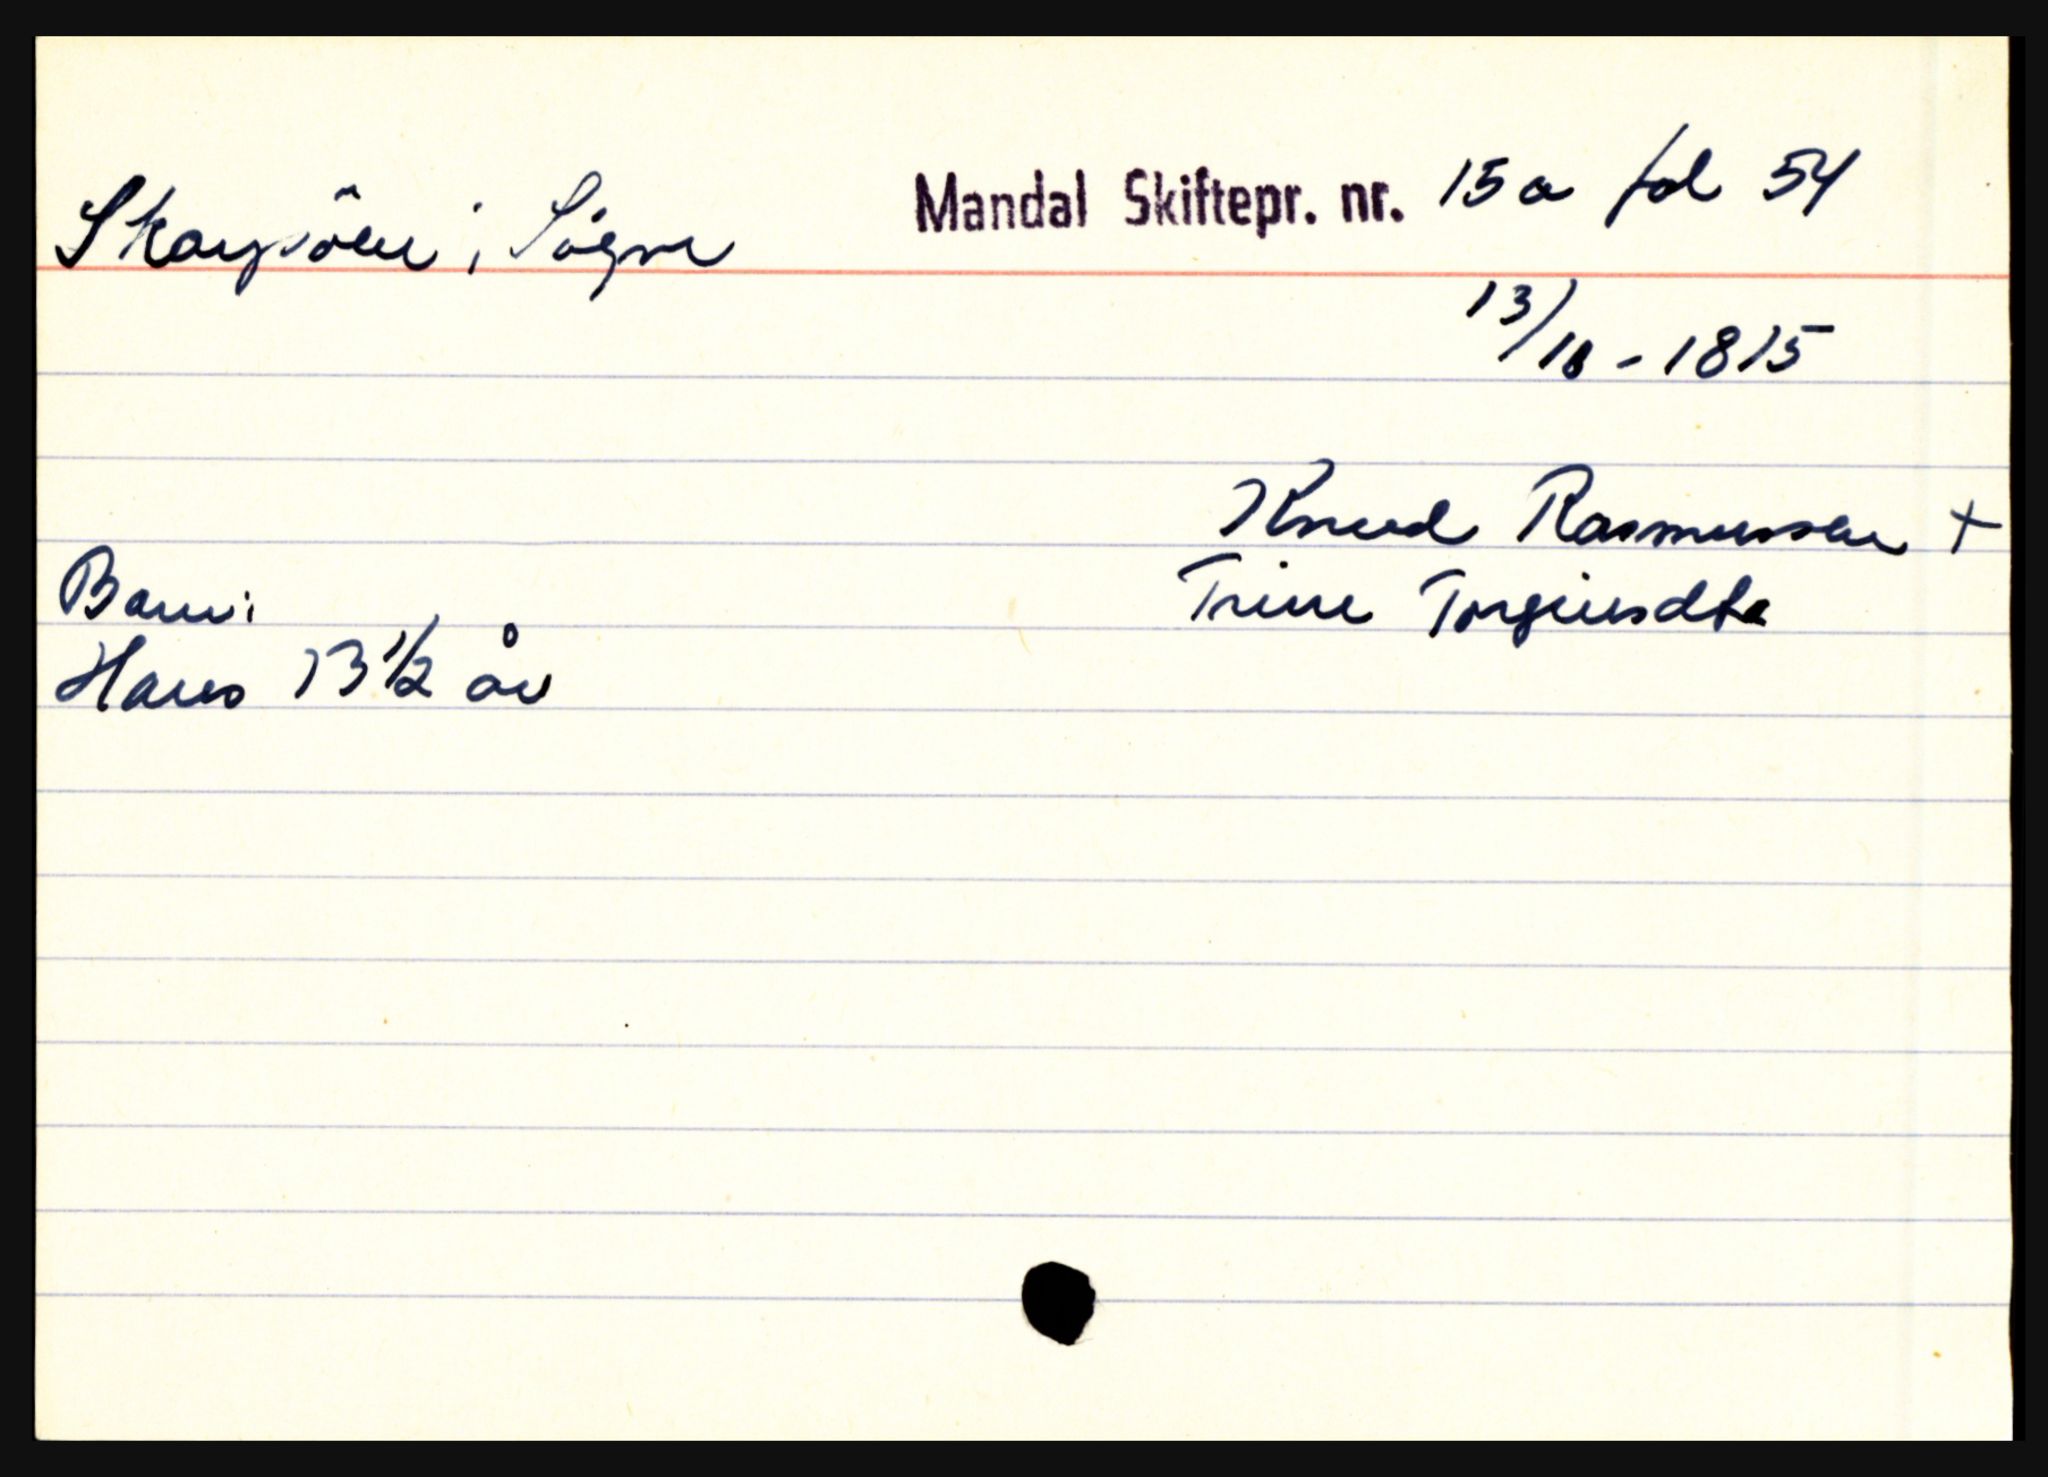 Skarpöen i Søgne Mandal Skiftepr. nr. 15a fol 54
13/10 - 1815
Knud Rasmussen +
Trine Torgiusdtr
Barn:
Hans 13 1/2 år